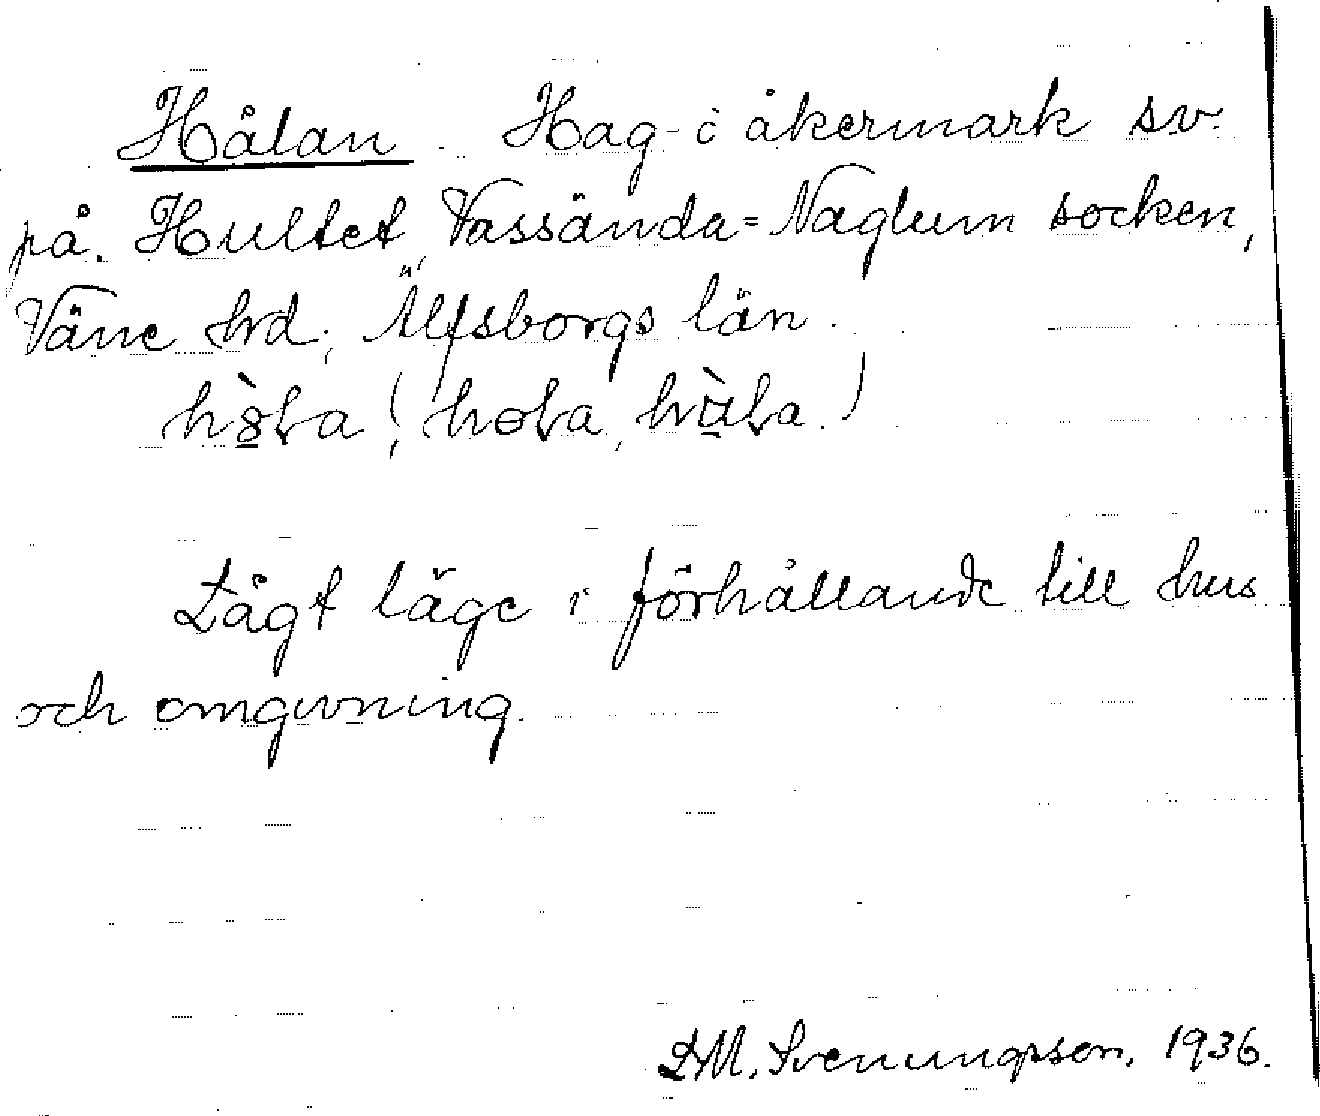 Hålan. Hag i åkermark sv.
på Hultet, Vassända=Naglum socken,
Väne hrd, Älfsborgs län.
Lågt läge i förhållande till hus
och omgivning.
D.M. Svenungsson. 1936.